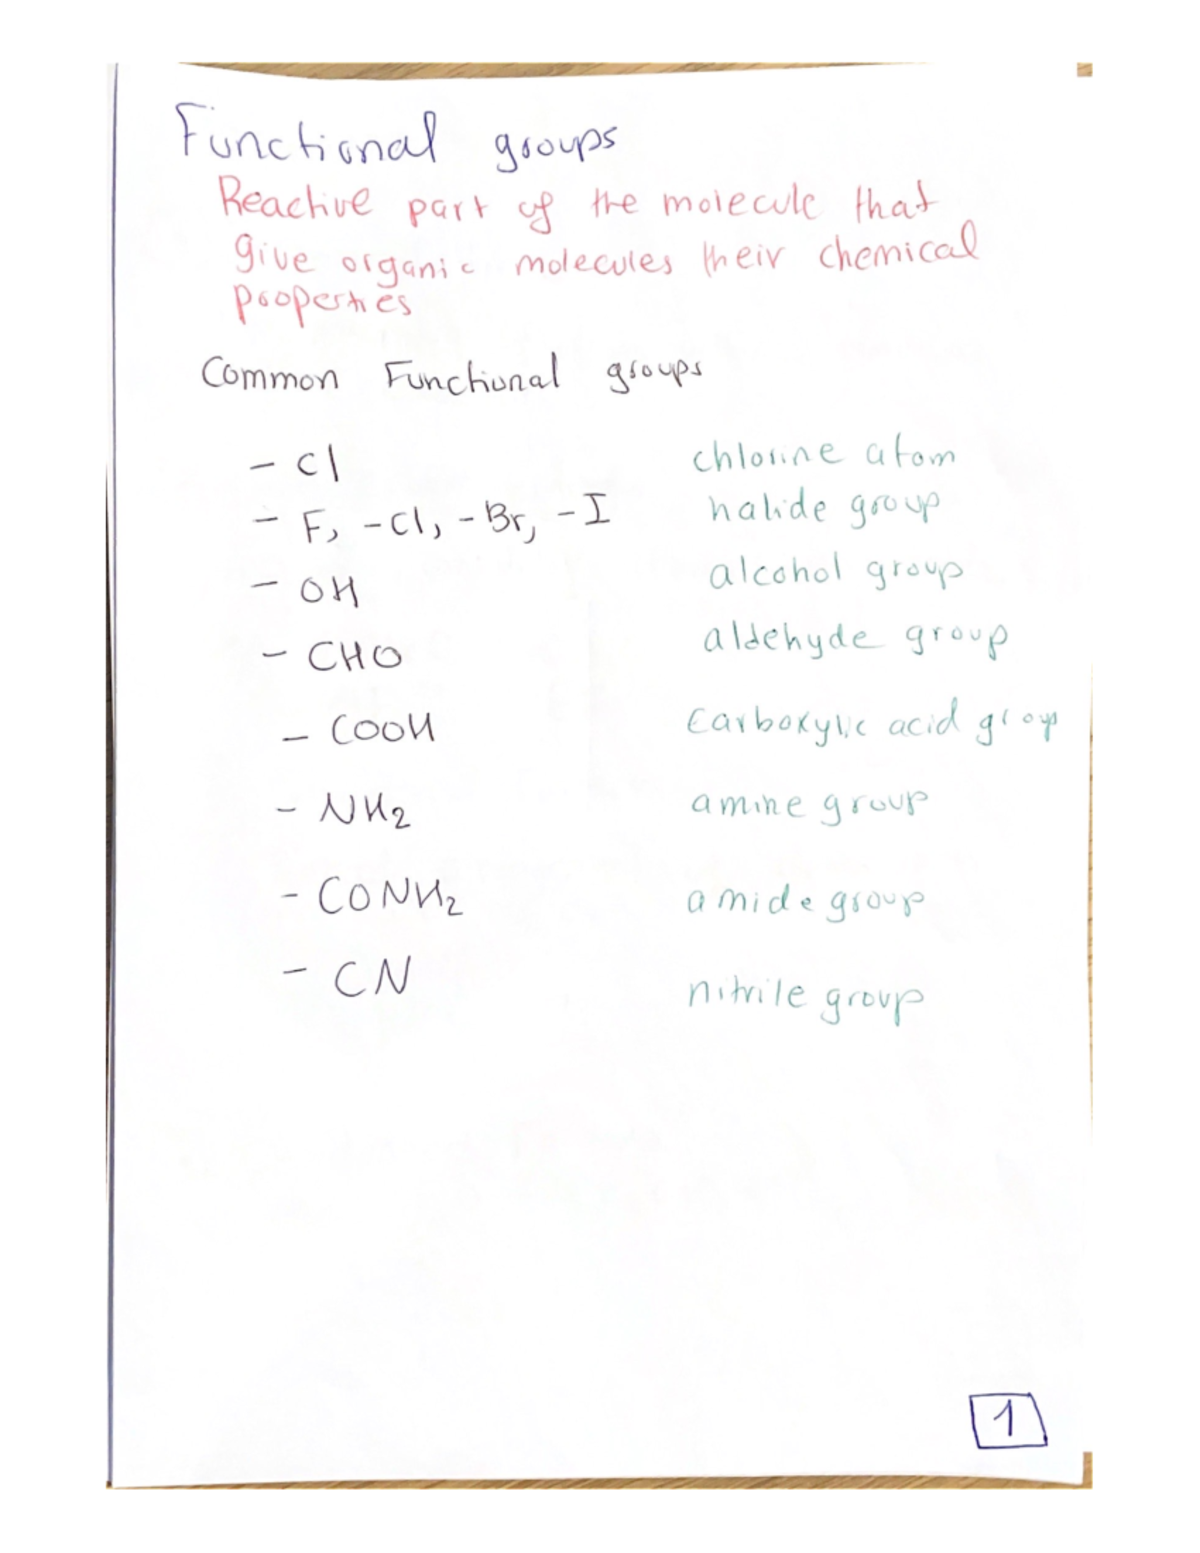 Functional groups
Reactive part of the molecule that
give organic molecules their chemical
properties
Common Functional groups
- Cl chlorine atom
- F, -Cl, -Br, -I halide group
- OH alcohol group
- CHO aldehyde group
- COOH carboxylic acid group
- NH2 amine group
- CONH2 amide group
- CN nitrile group
1